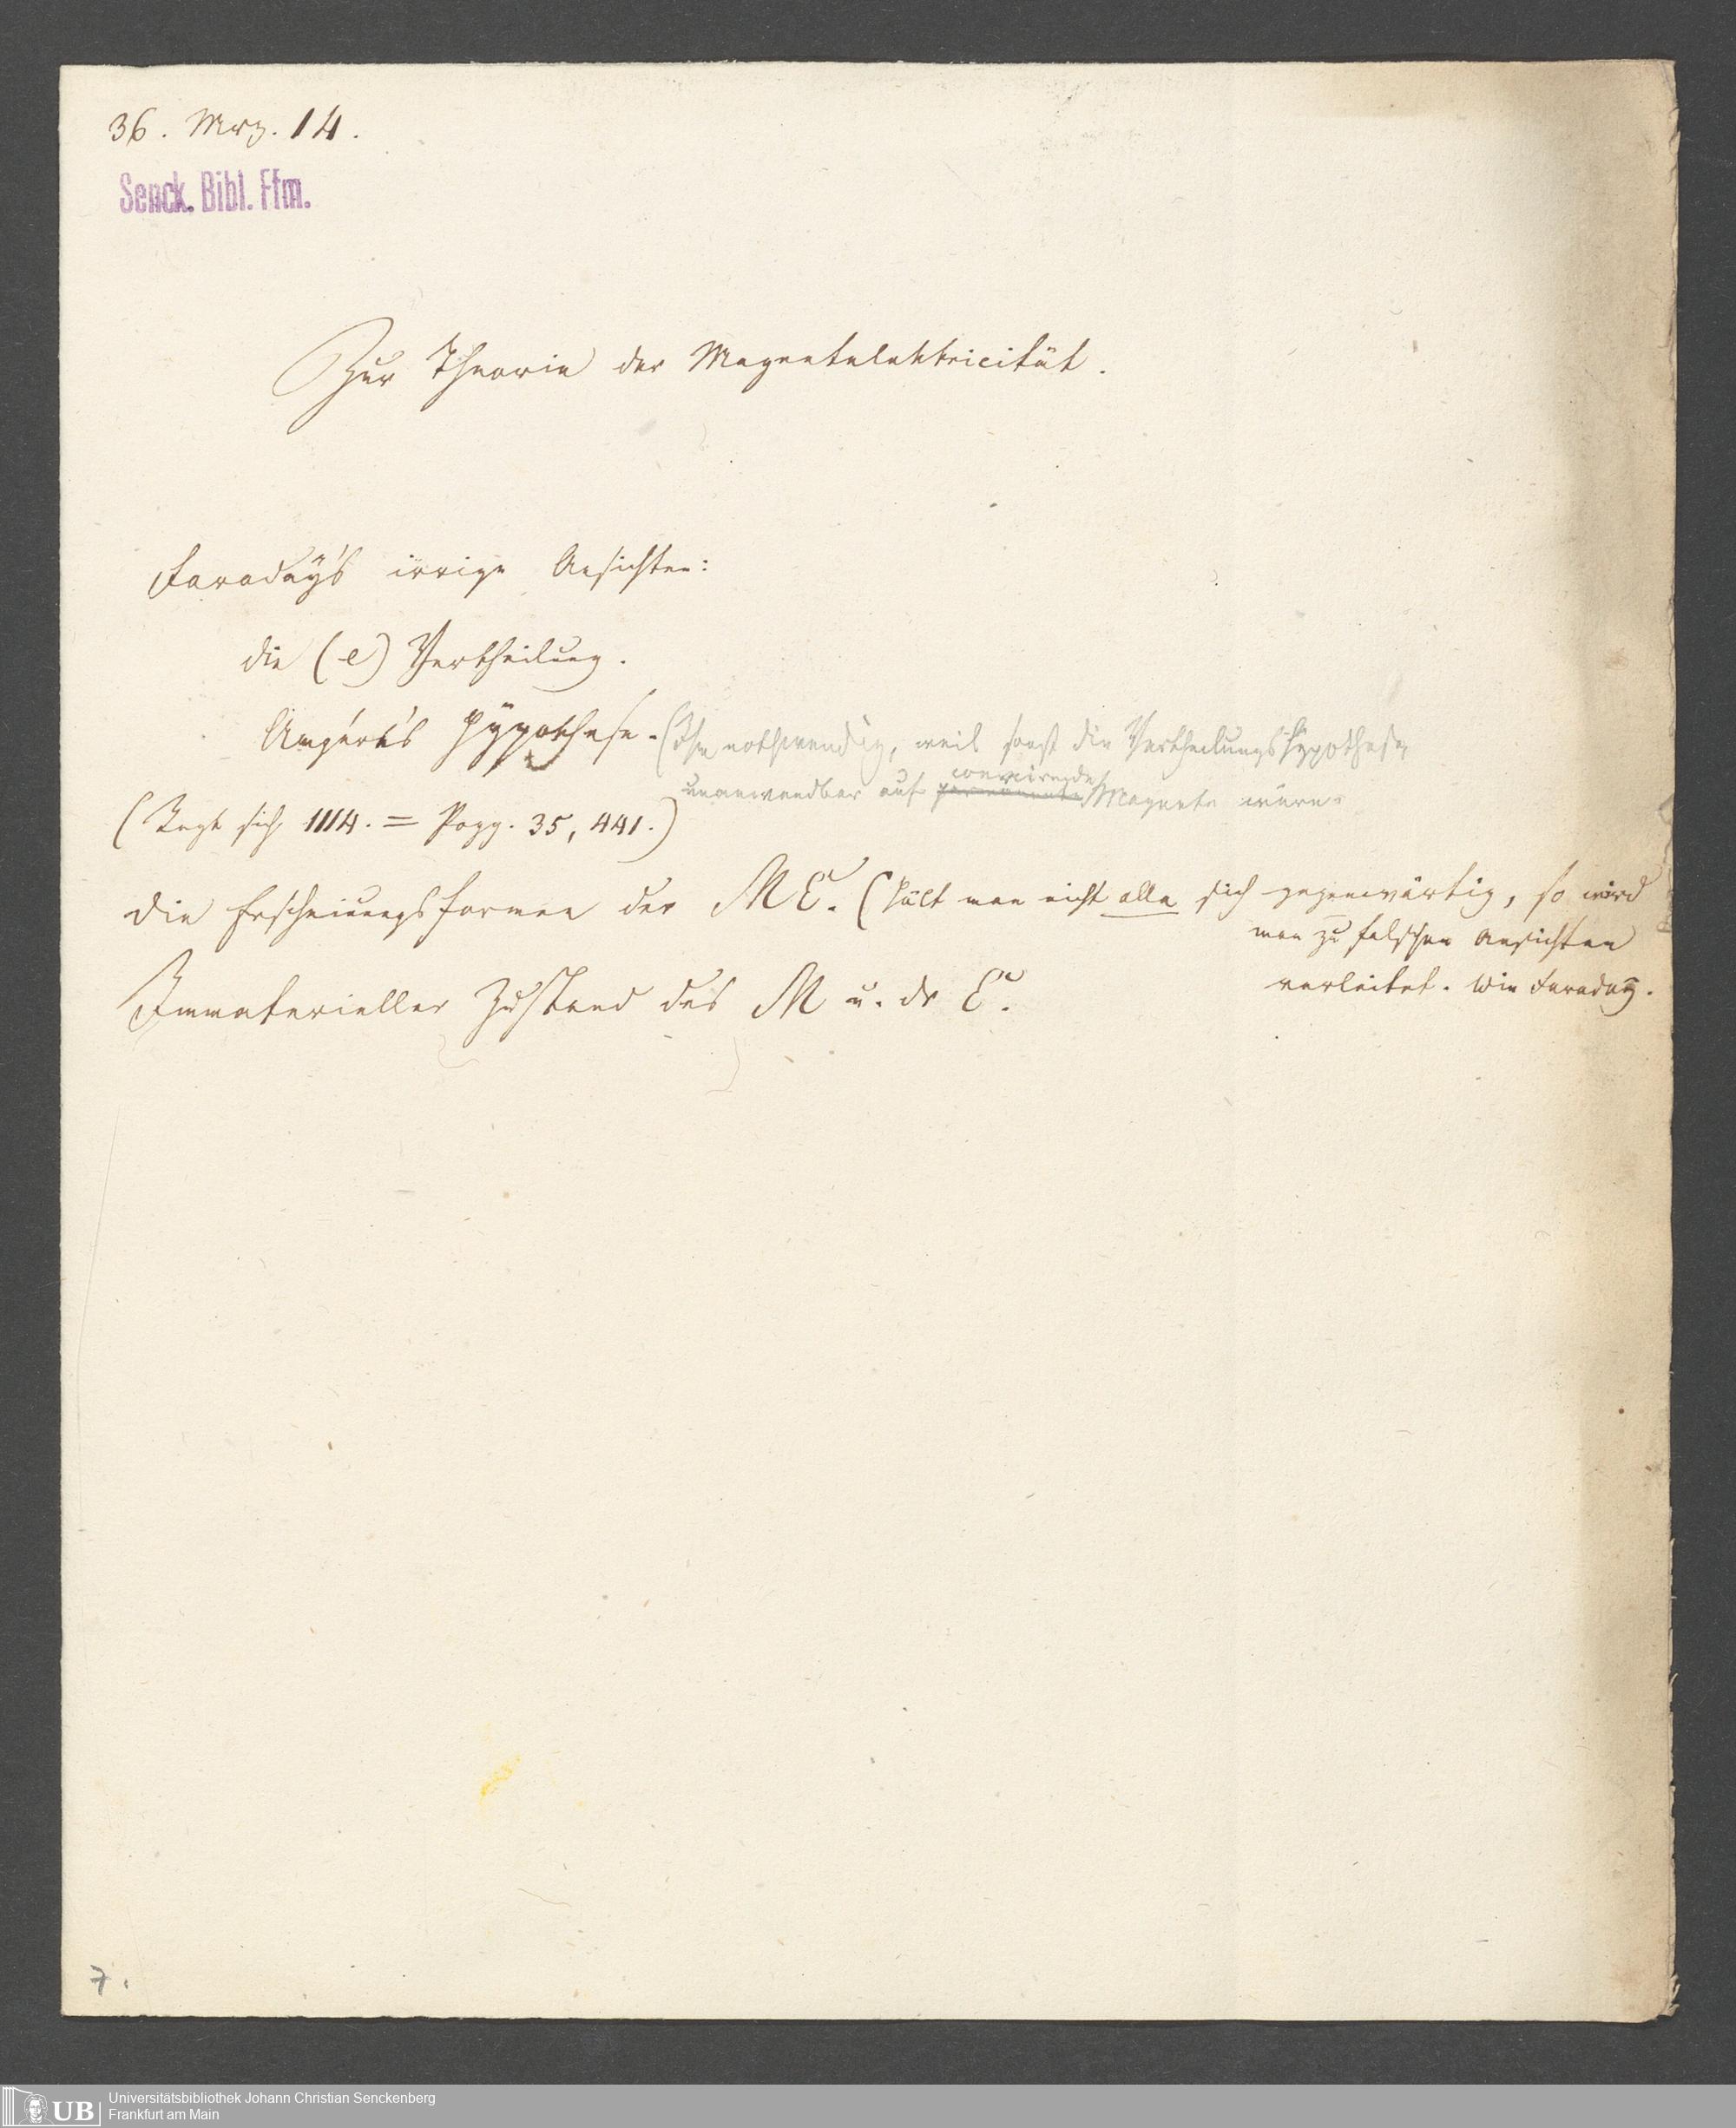 36. Mrz. 14.
Senck. Bibl. Ffm.
Zur Theorie der Magnetelektricität.
Faraday's irrige Ansichten:
die (e) Vertheilung.
Ampère's Hypothese. (Ihm nothwendig, weil sonst die Vertheilungshypothese
unanwendbar auf permanente Magnete wäre.
(Regt sich 1114. = Pogg. 35, 441.)
Die Erscheinungsformen der ME. (Hält man nicht alle sich gegenwärtig, so wird
man zu falschen Ansichten
verleitet. Wie Faraday.
Immaterieller Zustand des M u. dr E.
7.
UB
Universitätsbibliothek Johann Christian Senckenberg
Frankfurt am Main